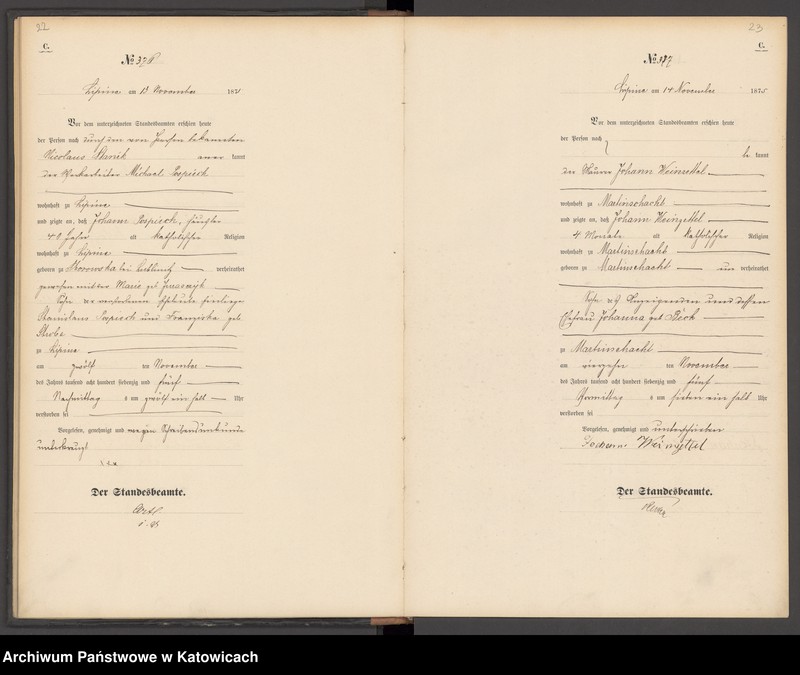 22
C.
№ 376
Lipine am 13 November 1875
Vor dem unterzeichneten Standesbeamten erschien heute
der Person nach durch den von Person bekannten
Nicolaus Stanik kannt
der Michael Pospiech
wohnhaft zu Lipine
und zeigte an, daß Johann Pospiech,
40 Jahre alt katholischer Religion
wohnhaft zu Lipine
geboren zu verheirathet
gewesen mit der Marie geb
Sohn der verstorbenen Eheleute
Stanislaus Pospiech und Franziska geb
zu Lipine
am zwölf ten November
des Jahres tausend acht hundert siebenzig und fünf
Nachmittag s um zwölf ein halb Uhr
verstorben sei
Vorgelesen, genehmigt und wegen Schreibensunkunde
unterkreuzt
xxx
Der Standesbeamte.
23
C.
№ 377
Lipine am 14 November 1875
Vor dem unterzeichneten Standesbeamten erschien heute
der Person nach
be kannt
der Häuer Johann Weinzettel
wohnhaft zu Martinschacht
und zeigte an, daß Johann Weinzettel
4 Monate alt katholischer Religion
wohnhaft zu Martinschacht
geboren zu Martinschacht un verheirathet
Sohn des Anzeigenden und dessen
Ehefrau Johanna geb
zu Martinschacht
am vierzehn ten November
des Jahres tausend acht hundert siebenzig und fünf
Vormittag s um sieben ein halb Uhr
verstorben sei
Vorgelesen, genehmigt und unterschrieben
Johann Weinzettel
Der Standesbeamte.
Archiwum Państwowe w Katowicach